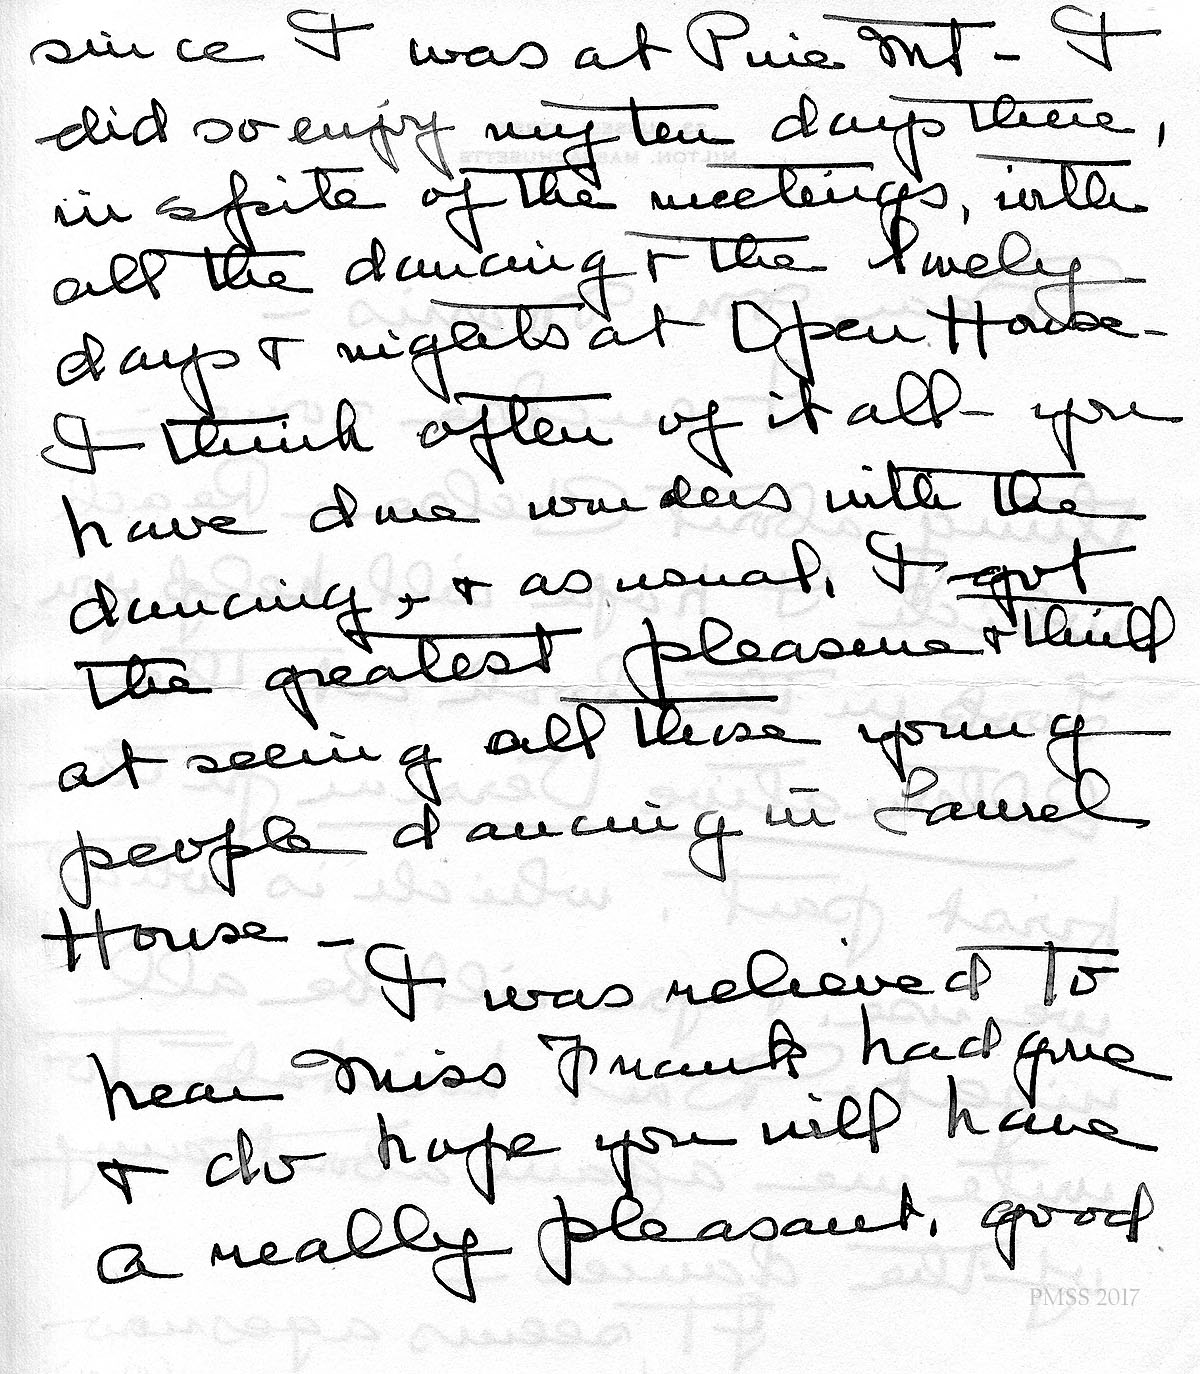 since I was at Pine Mt - I
did so enjoy my ten days there,
in spite of the meetings, with
all the dancing & the lovely
days & nights at Open House -
I think often of it all - you
have done wonders with the
dancing, & as usual, I got
the greatest pleasure & thrill
at seeing all those young
people dancing in Laurel
House -
I was relieved to
hear Miss Frank had gone
& do hope you will have
a really pleasant, good
PMSS 2017